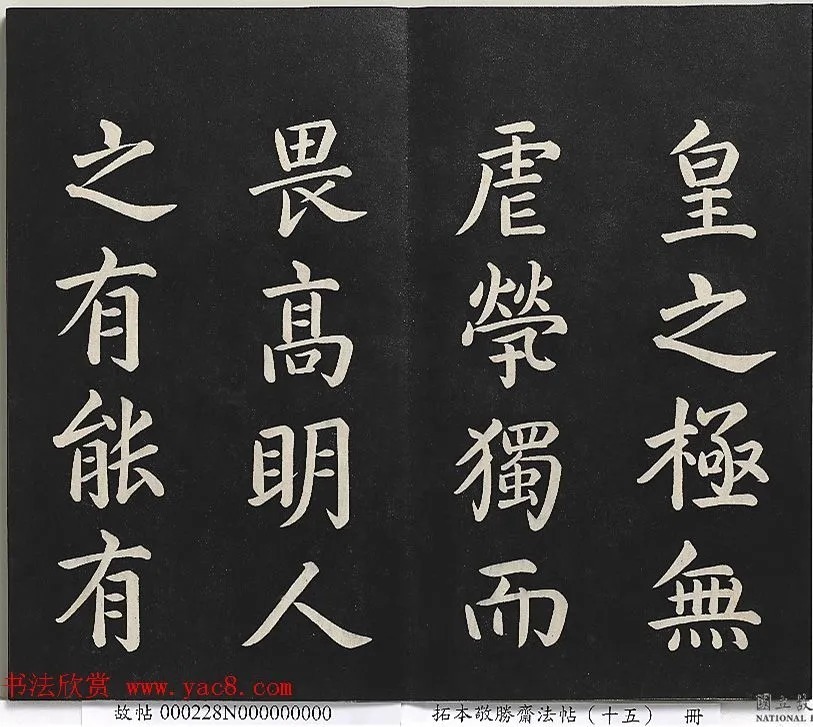 皇之極無
虐煢獨而
畏高明人
之有能有
书法欣赏 www.yac8.com
故帖 000228N000000000
拓本敬勝齋法帖（十五） 冊
國立故
NATIONAL